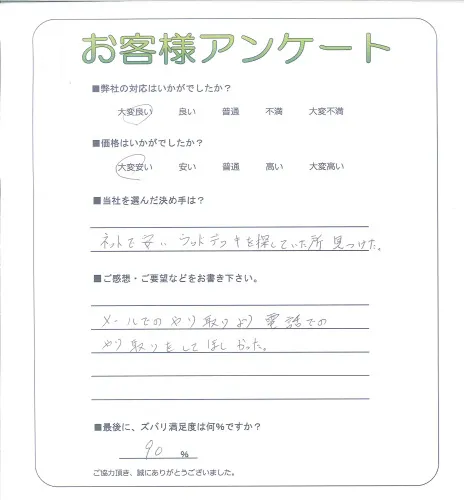 お客様アンケート
■弊社の対応はいかがでしたか？
大変良い 良い 普通 不満 大変不満
■価格はいかがでしたか？
大変安い 安い 普通 高い 大変高い
■当社を選んだ決め手は？
ネットで安いウッドデッキを探していた所見つけた。
■ご感想・ご要望などをお書き下さい。
メールでのやり取りより電話での
やり取りをしてほしかった。
■最後に、ズバリ満足度は何%ですか？
90 %
ご協力頂き、誠にありがとうございました。